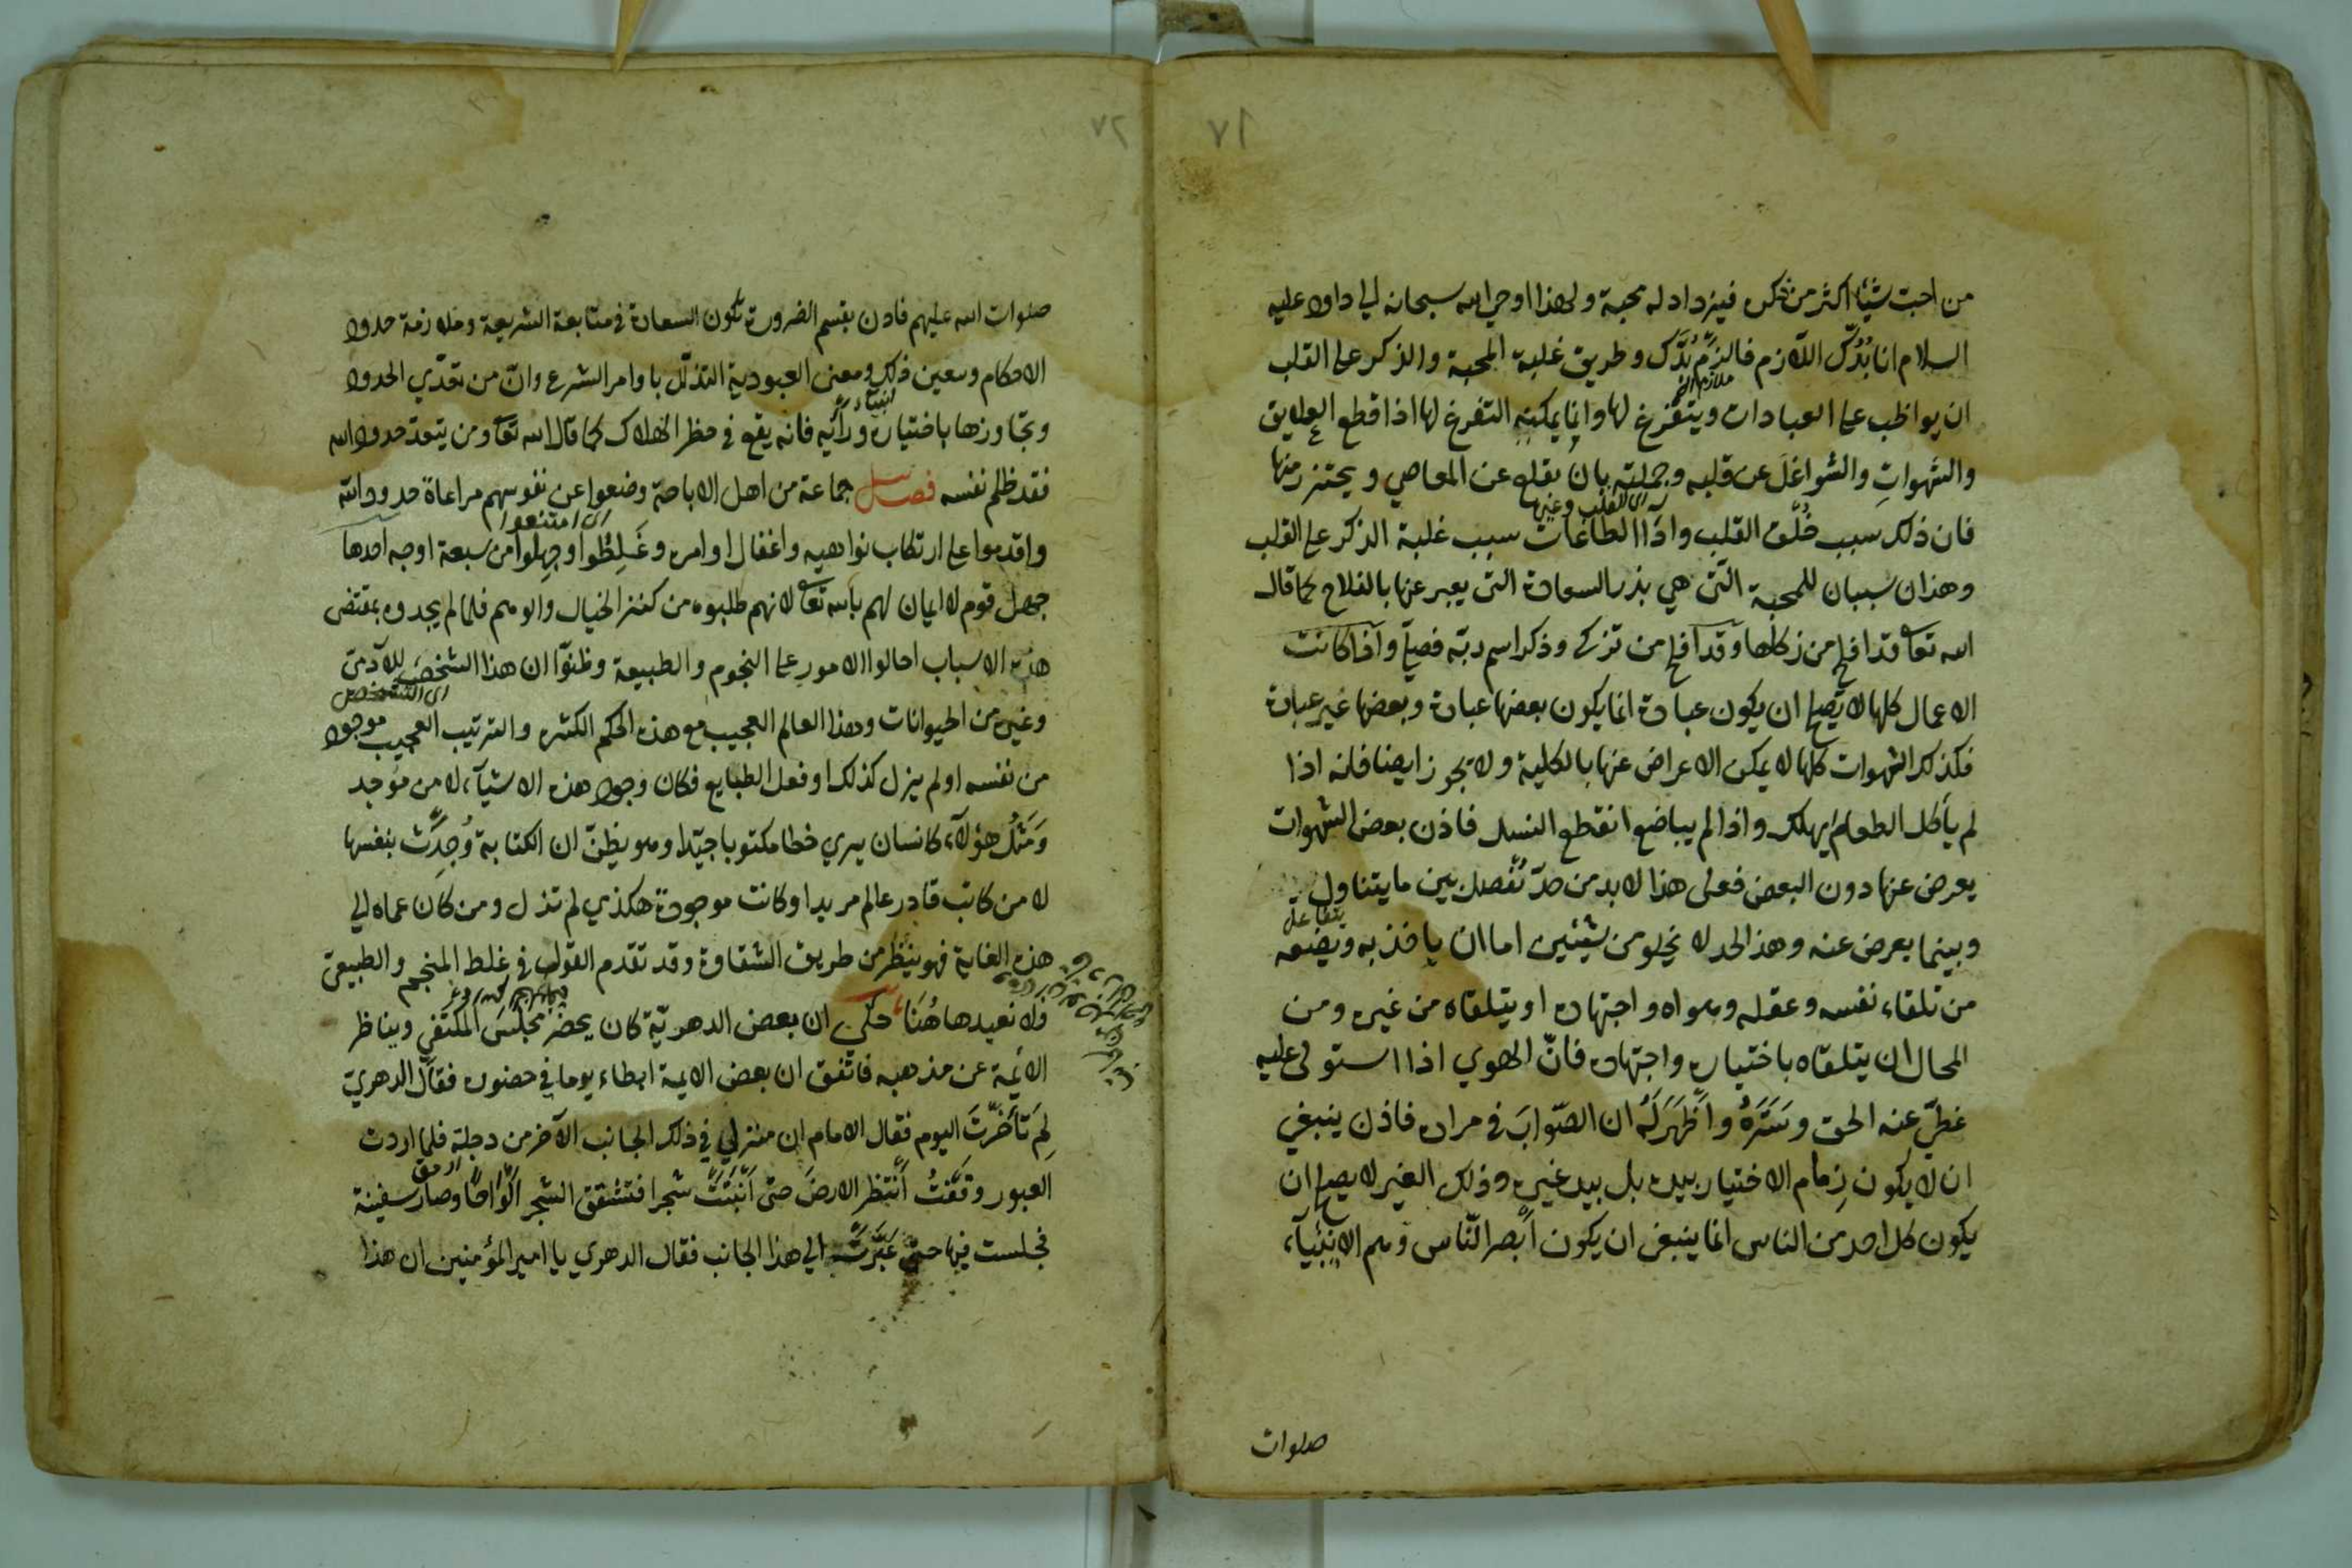 من احبّ شيئا اكثر من ذكره فيزداد له محبة ولهذا اوحي الله سبحانه الي داود عليه
السلام انا بُدُّك اللازم فالزم بُدَّك وطريق غلبة المحبة والذكر على القلب
ان يواظب على العبادات ويتفرغ لها وانما يمكنه التفرغ لها اذا قطع العلايق
والشهواتِ والشواغلَ عن قلبه وجملته بان يقلع عن المعاصي ويحترز منها
اى القلب وغيرها
فان ذلك سبب خُلُوّ القلب واَدَاء الطاعات سبب غلبة الذكر على القلب
وهذان سببان للمحبة الّتى هي بذر السعادة التى يعبر عنها بالفلاح كما قال
الله تعا قد افلح من زكاها وقد افلح من تزكى وذكر اسم ربّه فصلّي واذا كانت
الاعمال كلها لا تصلح ان يكون عبادة انما يكون بعضها عبادة وبعضها غير عبادة
فكذلك الشهوات كلها لا يمكن الاعراض عنها بالكلية ولا يجوز ايضا فانه اذا
لم يأكل الطعام يهلك واذا لم يباضع انقطع النسل فاذن بعض الشهوات
يعرض عنها دون البعض فعلى هذا لا بد من حدّ تُفصل بين ما يتناول
وبينما يعرض عنه وهذ الحد لا يخلو من شيئين اما ان ياخذ به ويضعه
من تلقاء نفسه وعقله وهواه واجتهاده او يتلقاه من غيره ومن
المحال ان يتلقاه باختياره واجتهاده فانّ الهوي اذا استولى عليه
غطّي عنه الحق وسَتَرَهُ واَظْهَرَ لَهُ ان الصّوابَ في مراده فاذن ينبغي
ان لا يكون زمام الاختيار بيده بل بيد غيره وذلك الغير لا يصلح ان
يكون كل احد من الناس انما ينبغى ان يكون أَبصر النّاس وهم الانبيآء
صلوات
صلوات الله عليهم فاذن بقسم الضرورة تكون السعادة في متابعة الشريعة وملازمة حدود
الاحكام ومعين ذلك ومعنى العبودية التذلّل باوامر الشرع وانّ من تعدّي الحدود
وتجاوزها باختياره ورأيه فانه يقع في خطر الهلاك كما قال الله تعا ومن يتعدّ حدود الله
فقد ظلم نفسه فصل جماعة من اهل الاباحة وضعوا عن نفوسهم مراعاة حدود الله
اى امتنعوا
واقدموا على ارتكاب نواهيه واغفال اوامره وغَلِطُوا وجهلوا من سبعة اوجه احدها
جهل قوم لا ايمان لهم بالله تعا لانهم طلبوه من كنز الخيال والوهم فلما لم يجدوه بمقتضى
هذه الاسباب احالوا الامور على النجوم والطبيعة وظنوّا ان هذا الشخصَ للآدمى
اى الشخص
وغيره من الحيوانات وهذا العالم العجيب مع هذه الحكم الكثيره والترتيب العجيب موجود
من نفسه او لم يزل كذلك او فعل الطبايع فكان وجود هذه الاشيآء لا من موجد
وَمَثَلُ هؤلآء كانسان يري خطا مكتوبا جيّدا وهو يظنّ ان الكتابة وُجِدَتْ بنفسها
لا من كاتب قادر عالم مريد او كانت موجودة هكذي لم تزل ومن كان عماه الي
هذه الغاية فهو ينظر من طريق الشقاوة وقد تقدم القول في غلط المنجم والطبيعى
ولا نعيدها هُنَا حكي ان بعض الدهريّة كان يحضر مجلس المكتفي ويناظر
الائمة عن مذهبه فاتّفق ان بعض الايمة ابطاء يوما في حضوره فقال الدهري
لِمَ تَأَخَّرْتَ اليوم فقال الامام ان منزلي في ذلك الجانب الآخر من دجلة فلما اردت
العبور وقَفْتُ أَنتظر الارضَ حتى اَنْبَتَتْ شجرا فتشقق الشجر اَلْوَاحًا وصار سفينة
فجلست فيها حتى عَبَرَتْ الي هذا الجانب فقال الدهري يا امير المؤمنين ان هذا